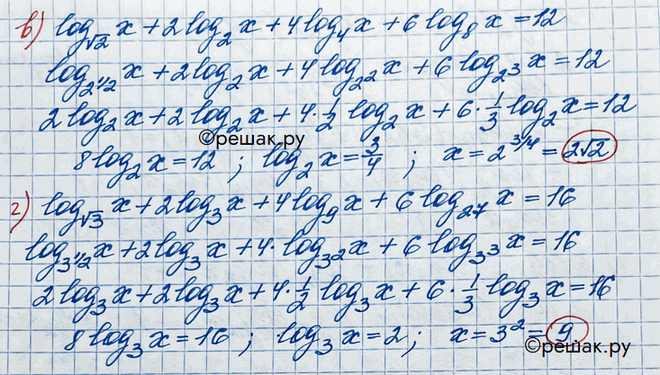 в) log_√2 x + 2 log_2 x + 4 log_4 x + 6 log_8 x = 12
log_2^1/2 x + 2 log_2 x + 4 log_2^2 x + 6 log_2^3 x = 12
2 log_2 x + 2 log_2 x + 4 · 1/2 log_2 x + 6 · 1/3 log_2 x = 12
©решак.ру
8 log_2 x = 12 ; log_2 x = 3/4 ; x = 2^3/4 = 2√2
г) log_√3 x + 2 log_3 x + 4 log_9 x + 6 log_27 x = 16
log_3^1/2 x + 2 log_3 x + 4 · log_3^2 x + 6 log_3^3 x = 16
2 log_3 x + 2 log_3 x + 4 · 1/2 log_3 x + 6 · 1/3 log_3 x = 16
8 log_3 x = 16 ; log_3 x = 2 ; x = 3^2 = 9
©решак.ру